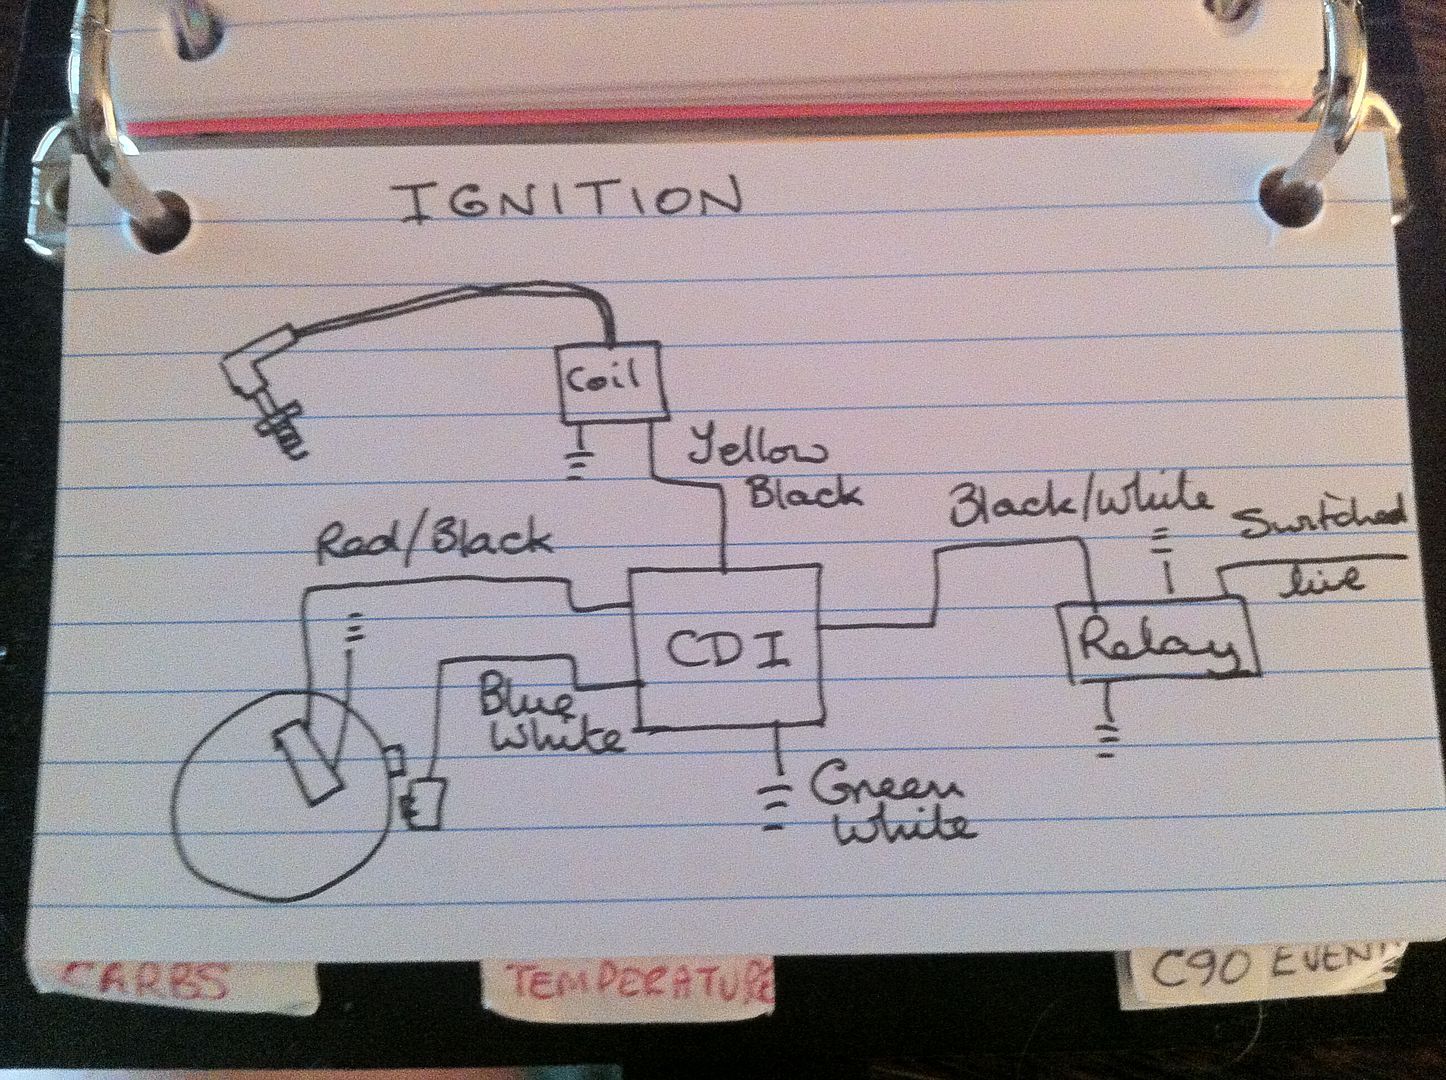 IGNITION
Coil
Yellow
Black
Red/Black
Black/White
Switched
live
CDI
Relay
Blue
White
Green
White
CARBS
TEMPERATURE
C90 EVENT